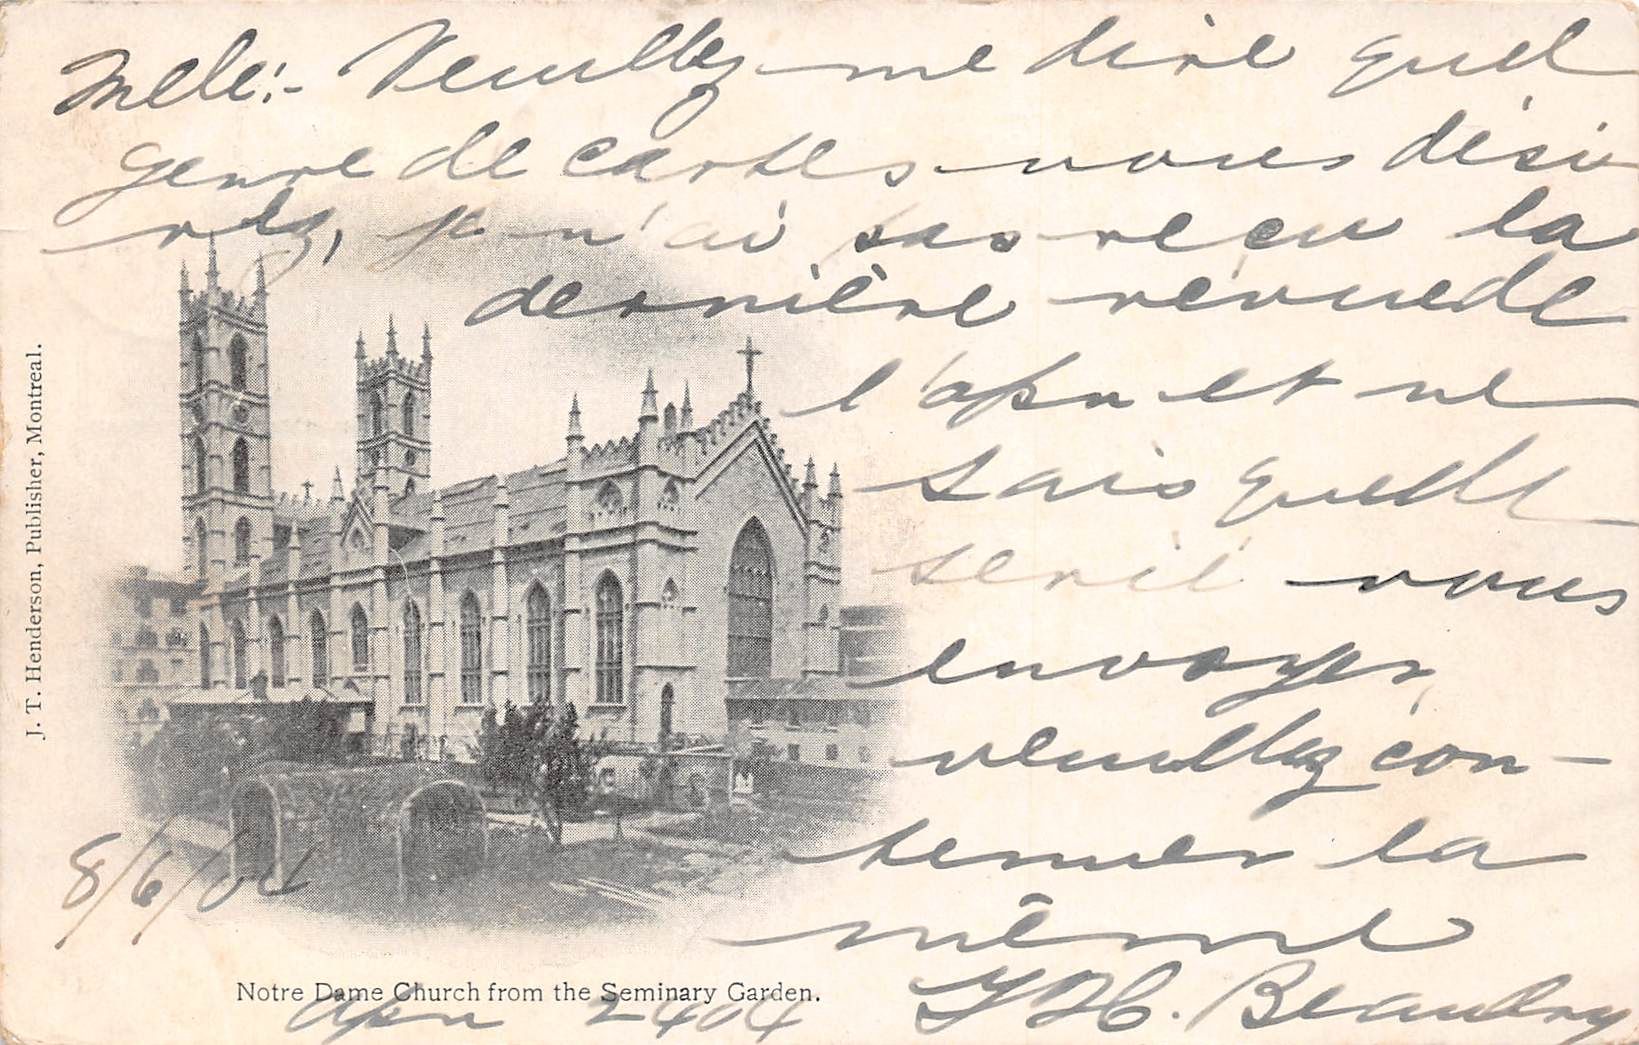 Melle:- Veuillez me dire quel
genre de cartes vous dési
rez, je n'ai pas reçu la
dernière révue de
l'apn et ne
sais quelle
série vous
envoyer,
veuillez con-
tenuer la
même
8/6/04
J. T. Henderson, Publisher, Montreal.
Notre Dame Church from the Seminary Garden.
Apn 2404
H. Beaudry